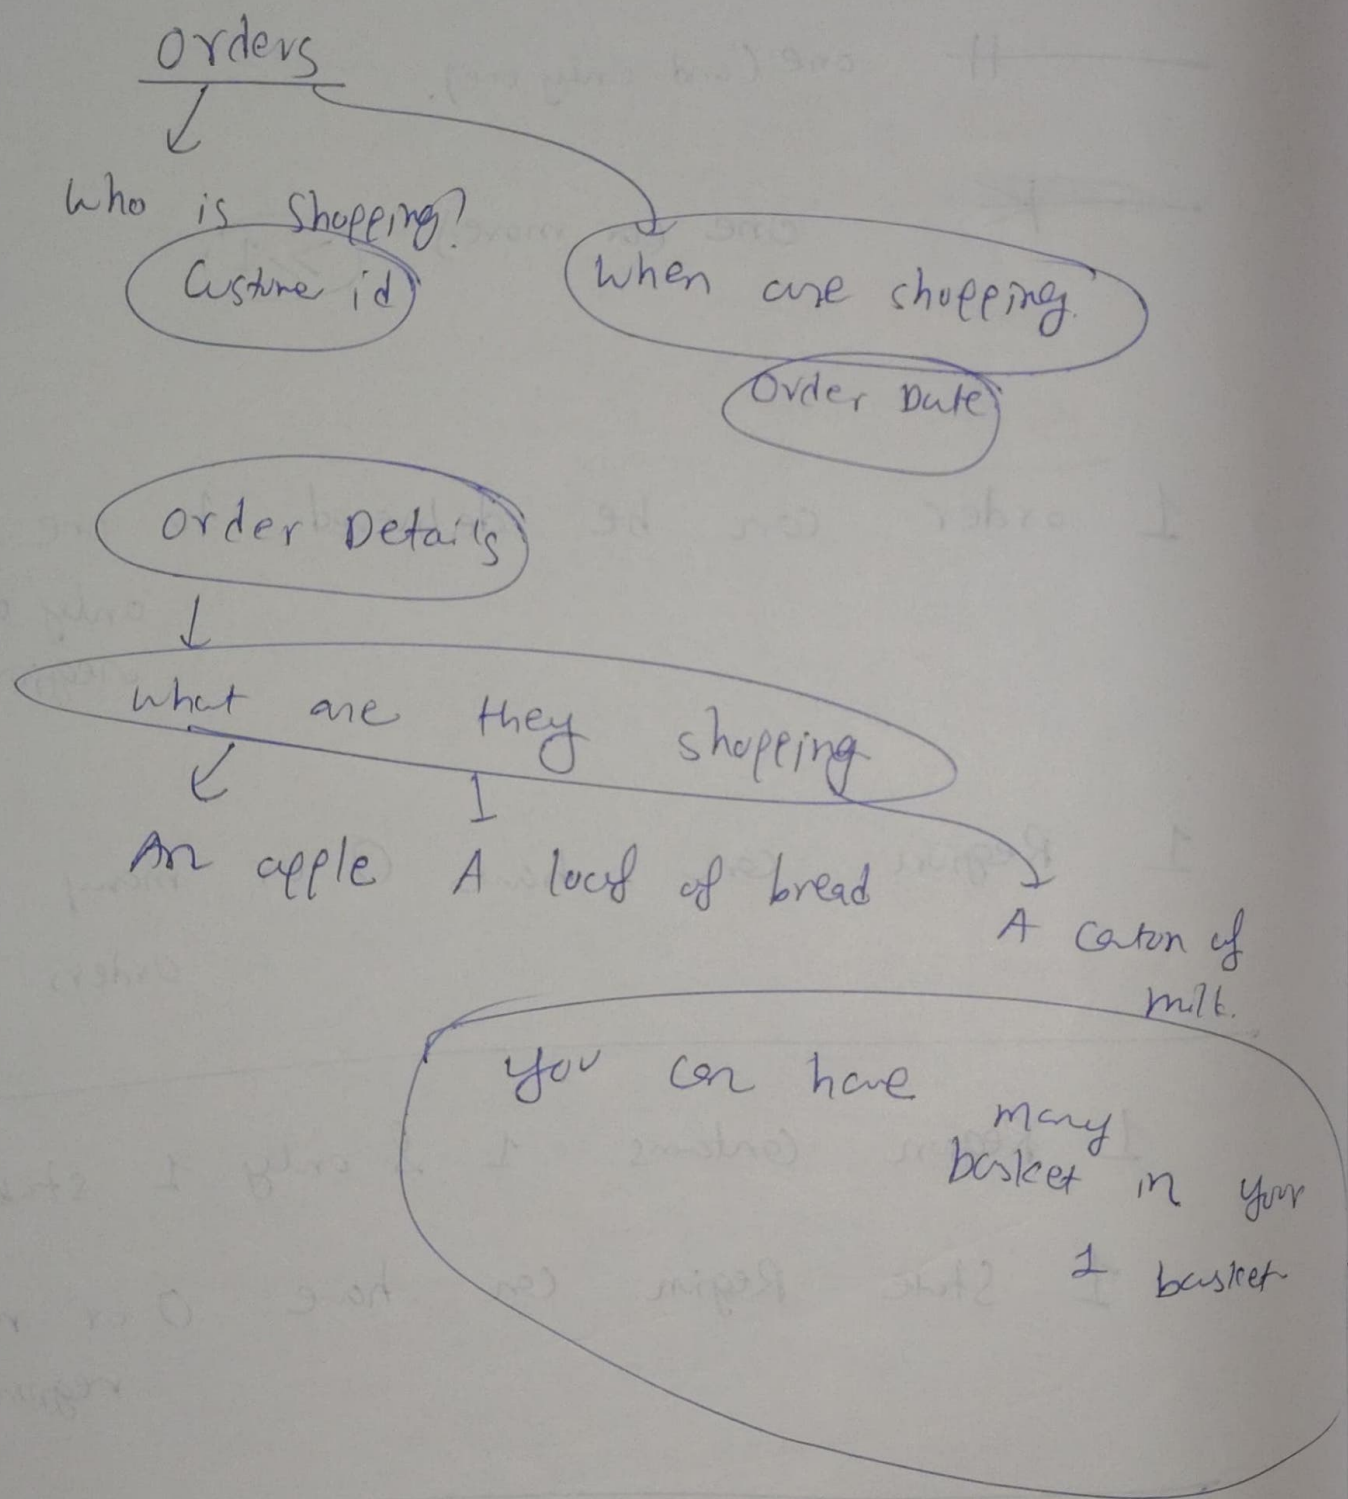 Orders
Who is Shopping?
Custume id
When are shopping.
Order Date
Order Details
what are they shopping
An apple A loaf of bread
A caton of
milk.
you can have
many
basket in your
1 basket